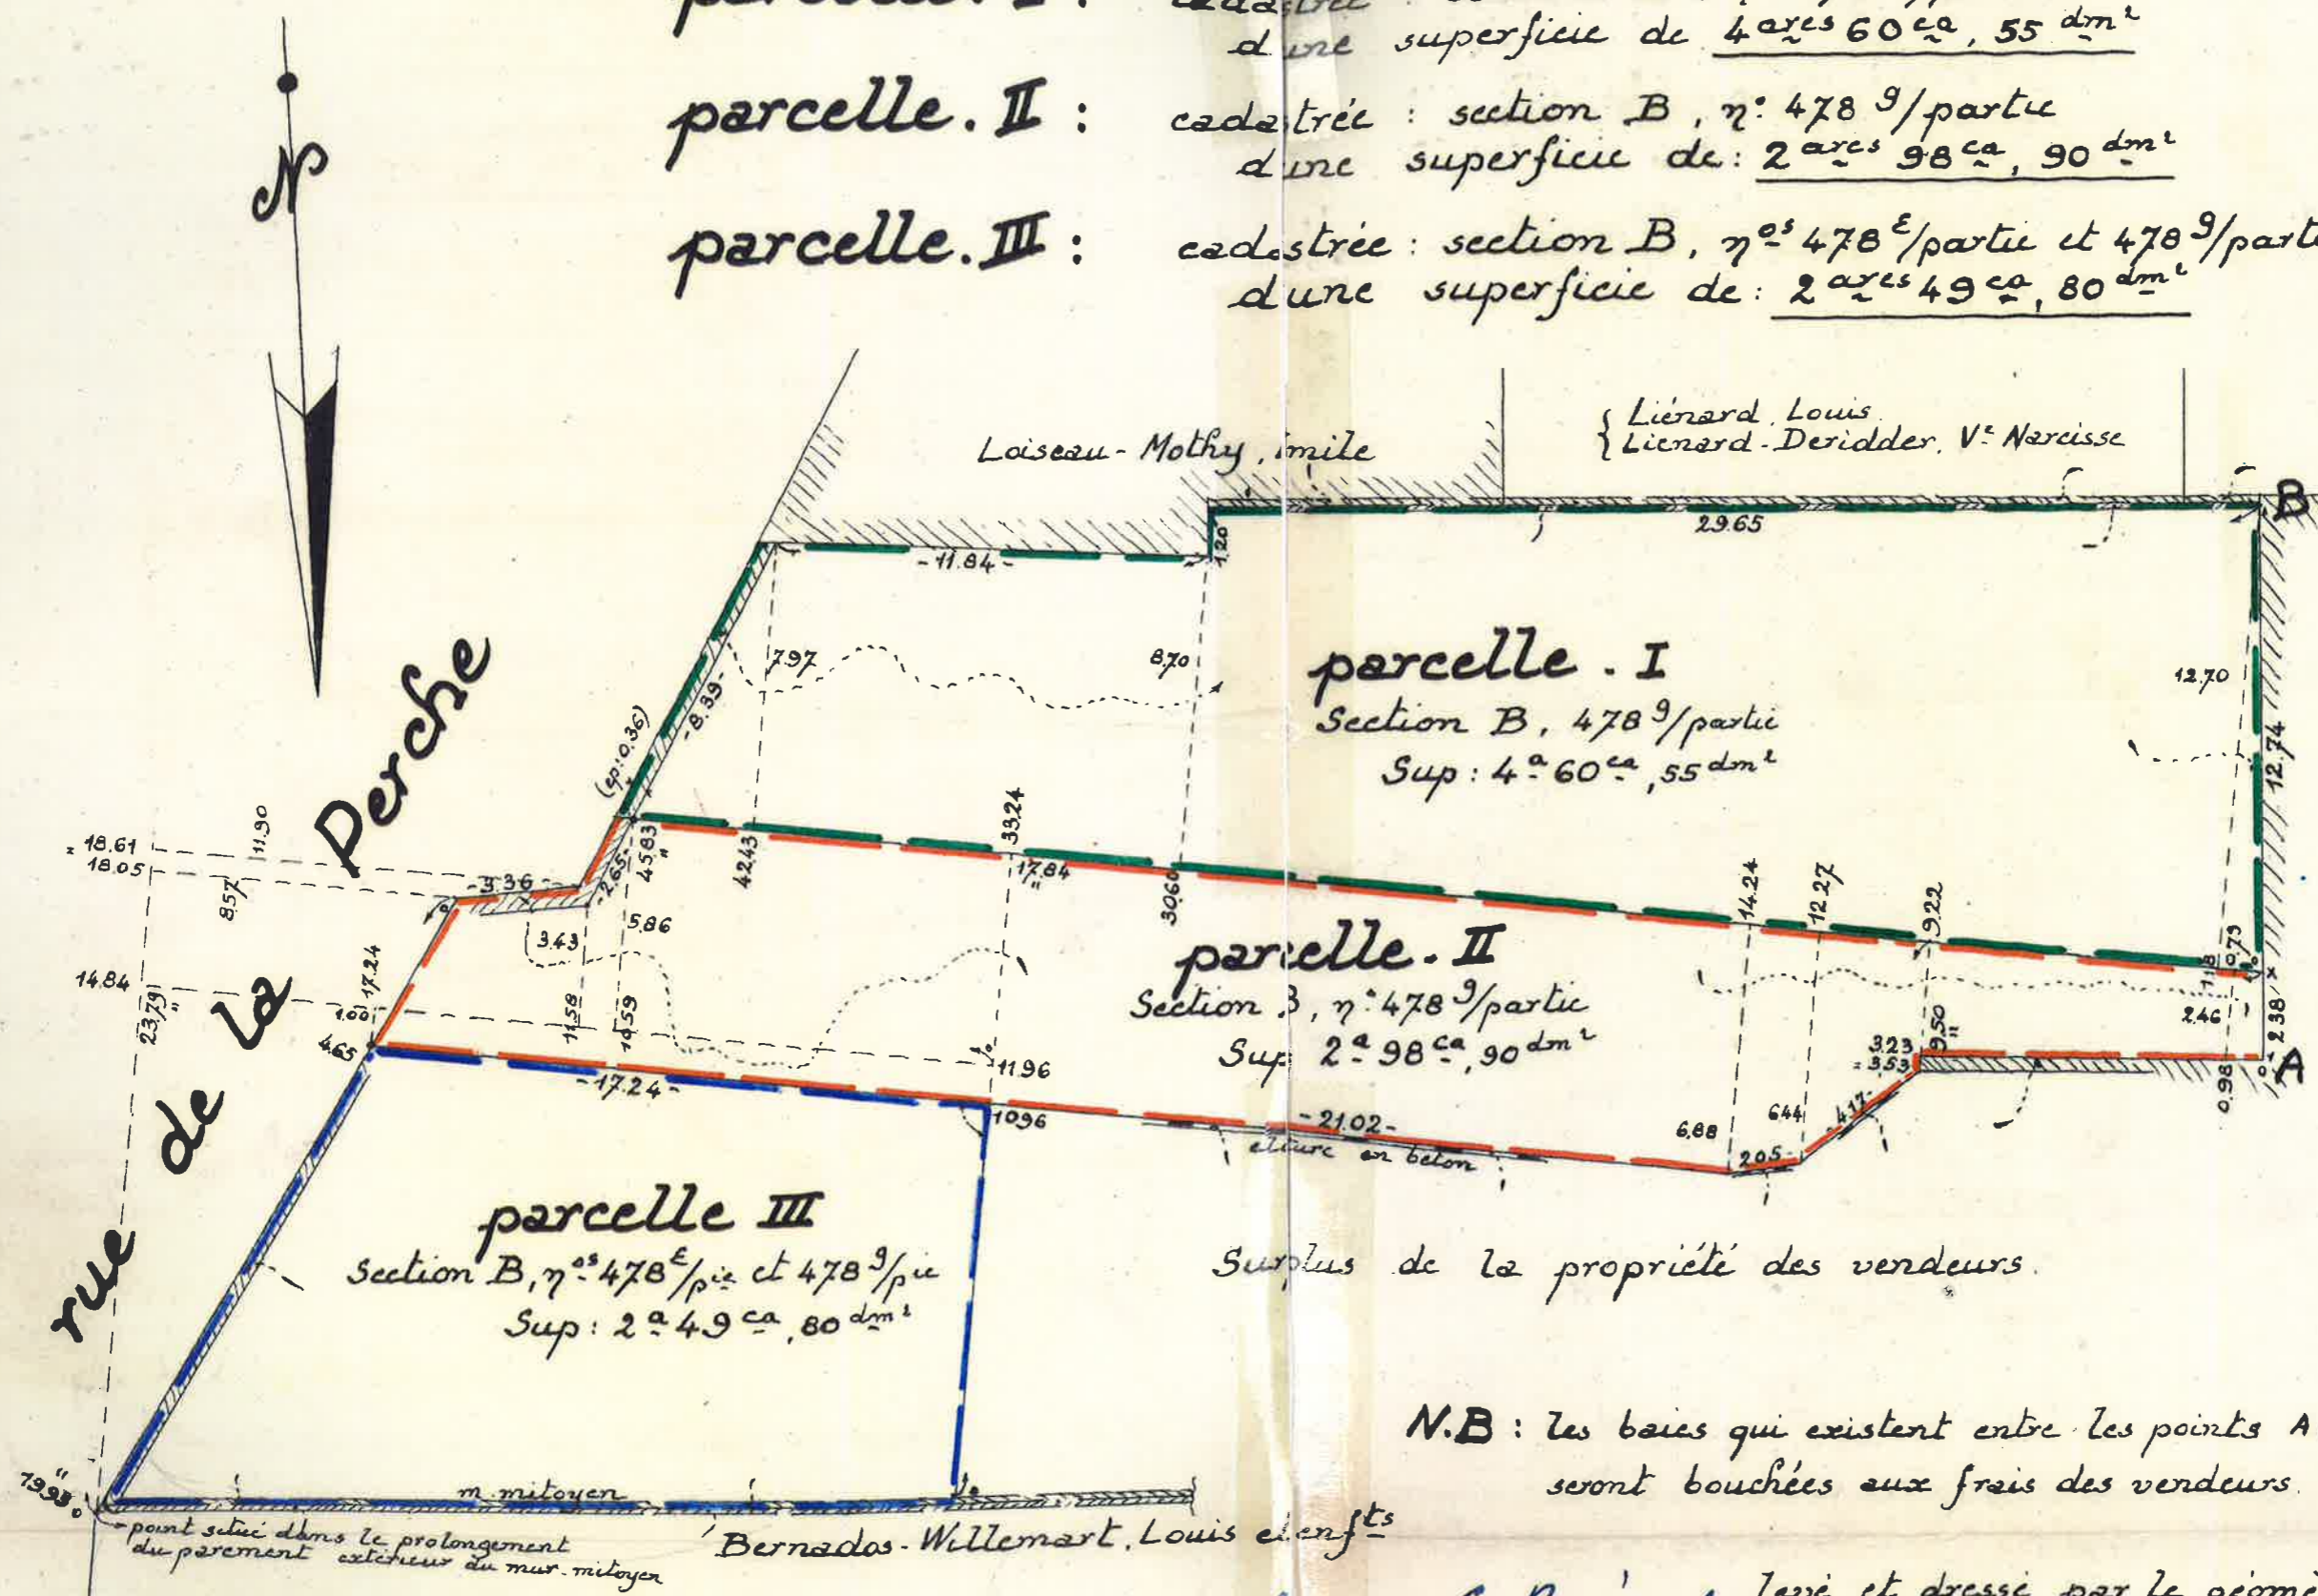 parcelle. I :
d'une superficie de 4 ares 60 ca, 55 dm²
parcelle. II : cadastrée : section B, n° 478 g/partie
d'une superficie de : 2 ares 98 ca, 90 dm²
parcelle. III : cadastrée : section B, nos 478 E/partie et 478 g/part
d'une superficie de : 2 ares 49 ca, 80 dm²
N
Loiseau - Mothy, Emile
{ Liénard. Louis
{ Lienard - Deridder. Ve Narcisse
B
29.65
1.20
- 11.84 -
7.97
8.70
parcelle . I
Section B, 478 g/partie
Sup : 4 a 60 ca, 55 dm²
12.70
12.74
- 8.39 -
(ep: 0.36)
rue de la Perche
= 18.61
18.05
11.90
8.57
- 3.36 -
- 2.65 -
45.83
42.43
33.24
17.84
30.60
14.24
12.27
9.22
0.79
11.8
3.43
5.86
14.84
23.79
17.24
1.00
4.65
11.58
10.59
11.96
10.96
parcelle. II
Section B, n° 478 g/partie
Sup 2 a 98 ca, 90 dm²
9.50
2.46
2.38
3.23
= 3.53
0.98
A
- 17.24 -
- 21.02 -
clture en beton
6.88
6.44
- 4.17 -
2.05 -
parcelle III
Section B, nos 478 E/pie et 478 g/pie
Sup : 2 a 49 ca, 80 dm²
Surplus de la propriété des vendeurs.
N.B : les baies qui existent entre les points A
seront bouchées aux frais des vendeurs.
m. mitoyen
point situé dans le prolongement
du parement extérieur du mur. mitoyen
Bernados - Willemart. Louis et enfts
levé et dressé par le géom